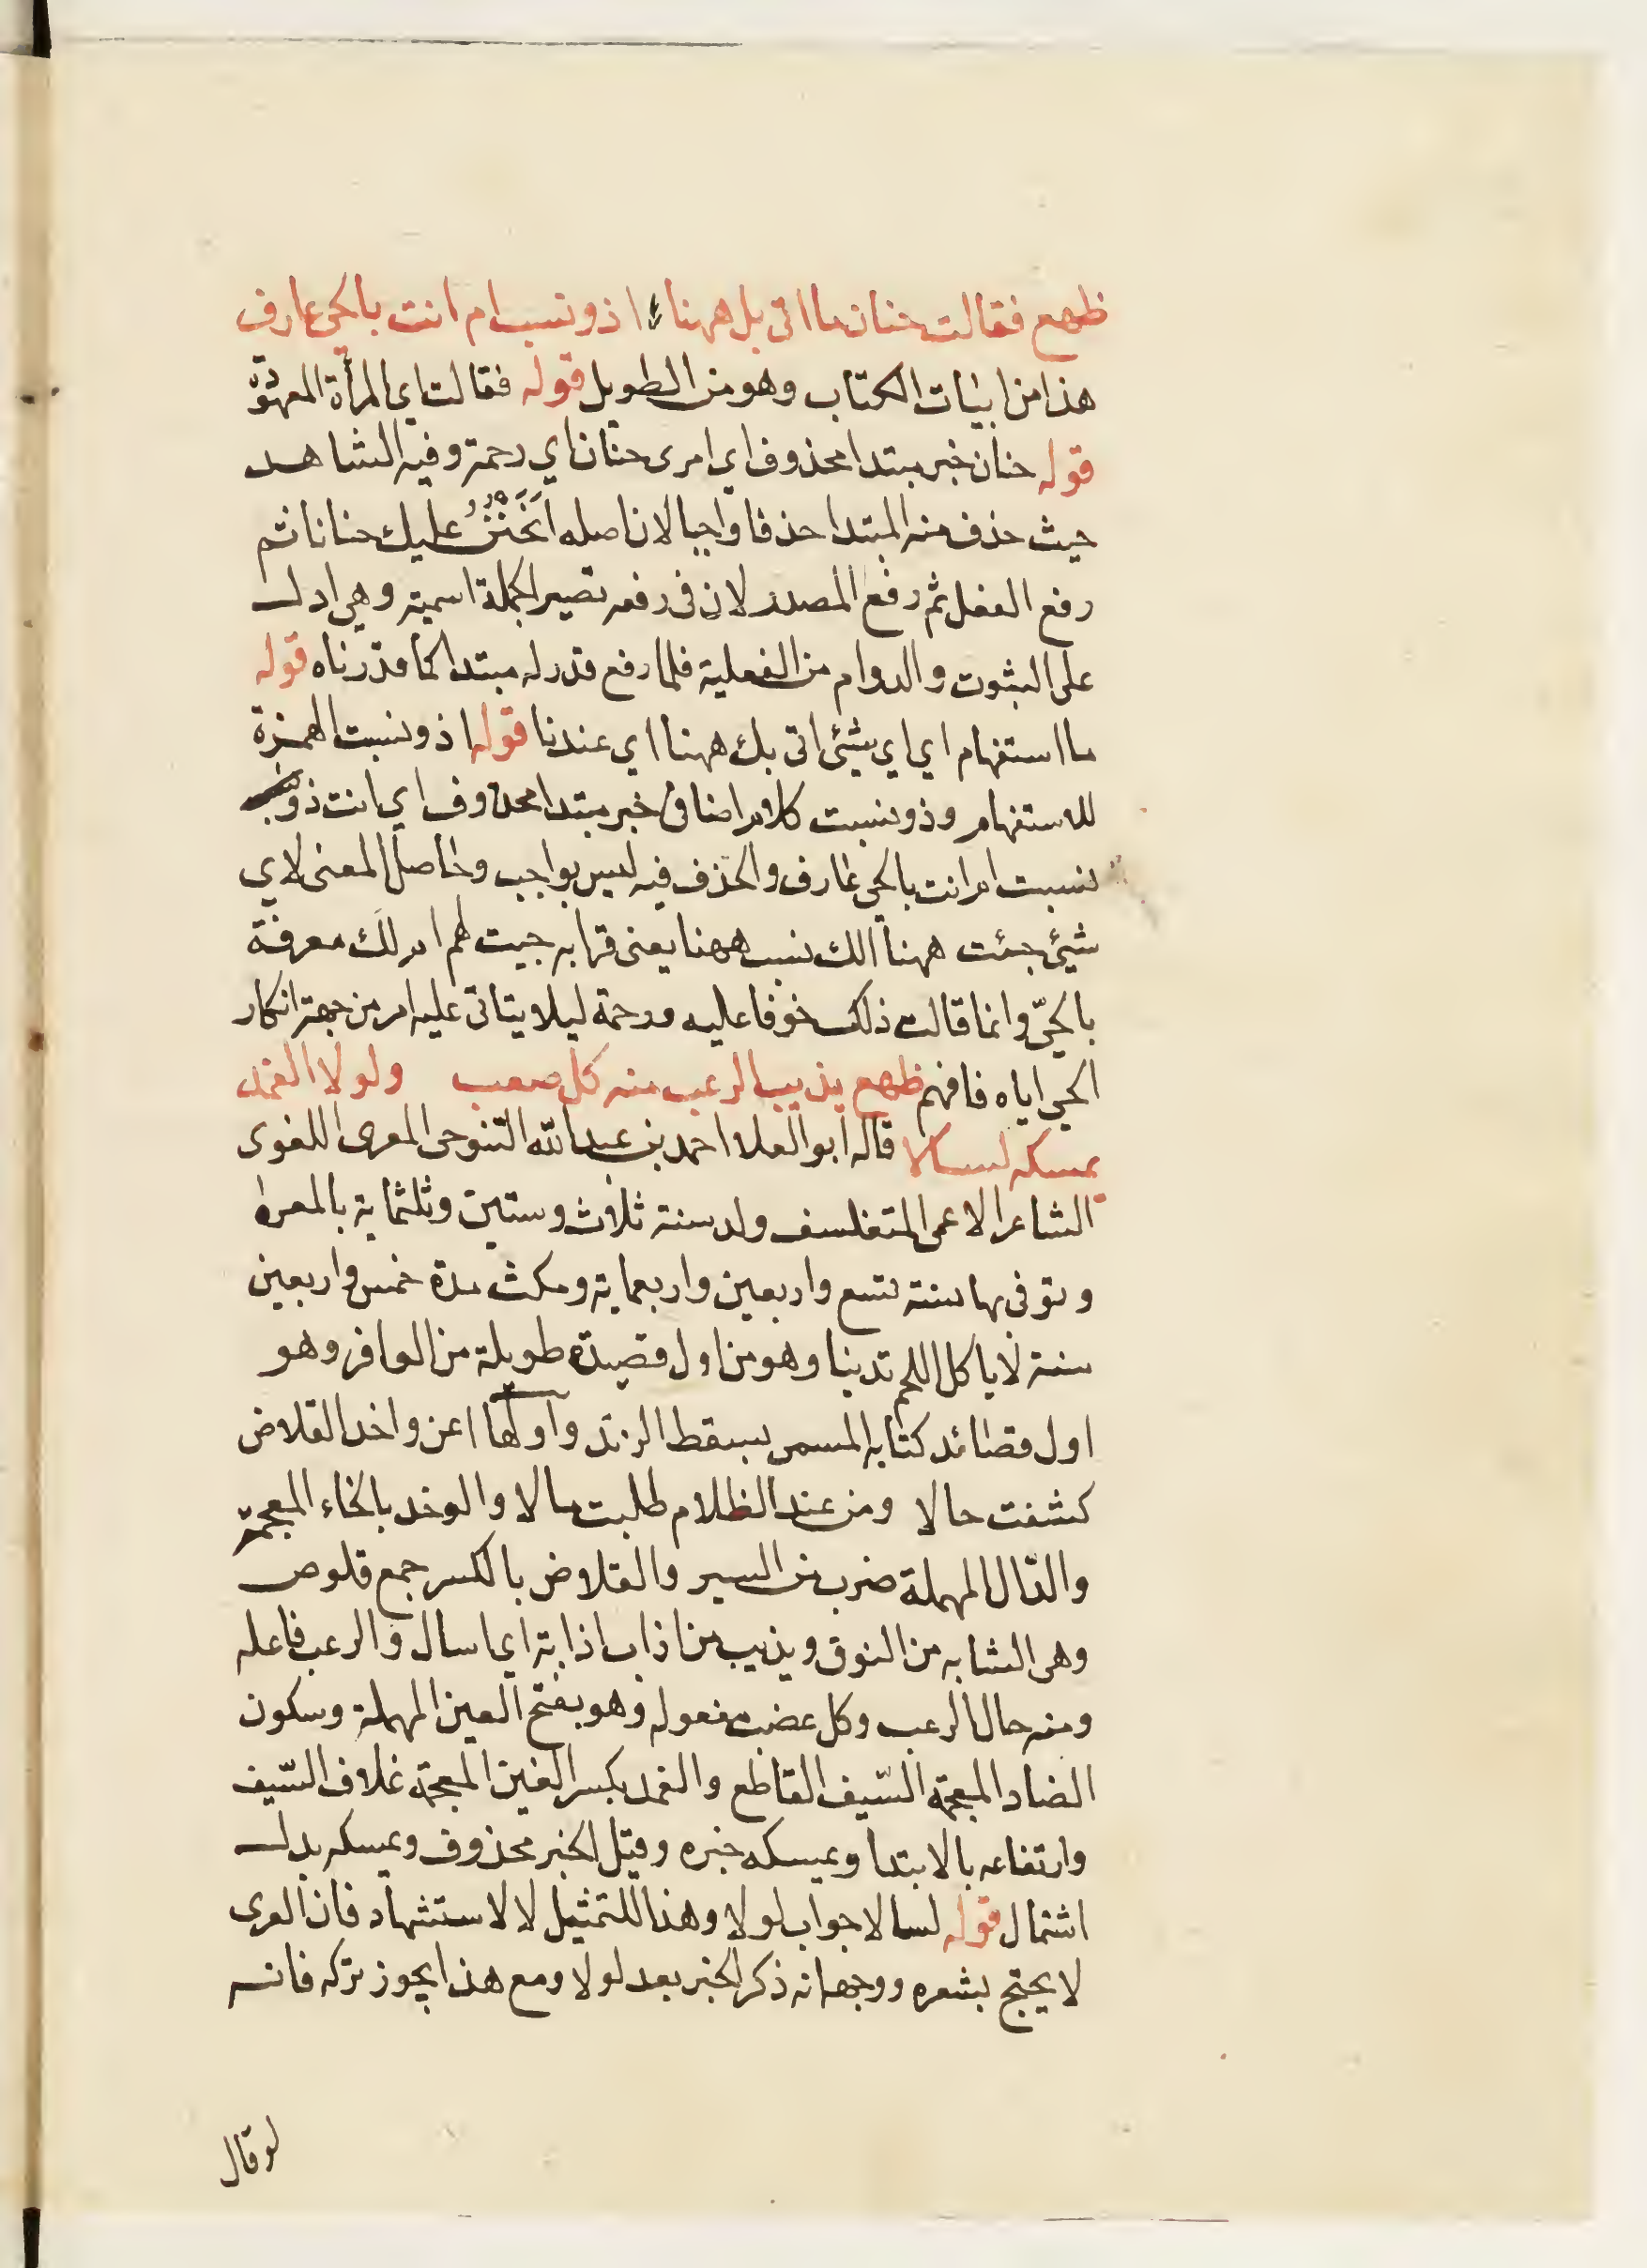 ظهع فقالت حنان ما اتى بك ههنا ء اذو نسب ام انت بالحي عارف
هذا من ابيات الكتاب وهو من الطويل قوله فقالت اي المرأة المعهودة
قوله حنان خبر مبتدا محذوف اي امرى حنان اي رحمة وفيه الشاهد
حيث حذف منه المبتدا حذفا واجبا لان اصله اَتَحَنَّنُ عليك حنانا ثم
رفع الفعل ثم رفع المصدر لان فى رفعه تصير الجملة اسمية وهي ادل
على الثبوت والدوام من الفعلية فلما رفع قدر له مبتدا كما قدرناه قوله
ما استفهام اي اي شيئ اتى بك ههنا اي عندنا قوله اذو نسب الهمزة
للاستفهام وذو نسب كلام اضافى خبر مبتدا محذوف اي انت ذو
نسب ام انت بالحي عارف والحذف فيه ليس بواجب وحاصل المعنى لاي
شيئ جئت ههنا الك نسب ههنا يعنى قرابه جيت لهم ام لك معرفة
بالحيّ وانما قالت ذلك خوفا عليه ورحمة ليلا يتاتى عليه امر من جهة انكار
الحي اياه فافهم ظهع يذيب الرعب منه كل صعب ولولا الغمد
يمسكه لسالا قاله ابو العلا احمد بن عبد الله التنوحى المعرى اللغوى
الشاعر الاعمى المتفلسف ولد سنة ثلاث وستين وثلثماية بالمعرة
وتوفى بها سنة تسع واربعين واربعماية ومكث مدة خمس واربعين
سنة لا ياكل اللحم تدينا وهو من اول قصيدة طويلة من الوافر وهو
اول قصائد كتابه المسمى بسقط الزند وأولها اعن واخد القلاص
كشفت حالا ومن عند الظلام طلبت مالا والوخد بالخاء المعجمة
والدال المهملة ضرب من السير والقلاص بالكسر جمع قلوص
وهى الشابه من النوق ويذيب من اذاب اذابة اي اسال والرعب فاعله
ومنه حال الرعب وكل عضب مفعوله وهو بفتح العين المهملة وسكون
الضاد المعجمة السّيف القاطع والغمد بكسر الغين المعجمة غلاف السّيف
وارتفاعه بالابتدا ويمسكه خبره وقيل الخبر محذوف ويمسكه بدل
اشتمال قوله لسالا جواب لولا وهذا للتمثيل لا للاستشهاد فان المعرى
لا يحتج بشعره ووجهه انه ذكر الخبر بعد لولا ومع هذا يجوز تركه فانه
لو قال